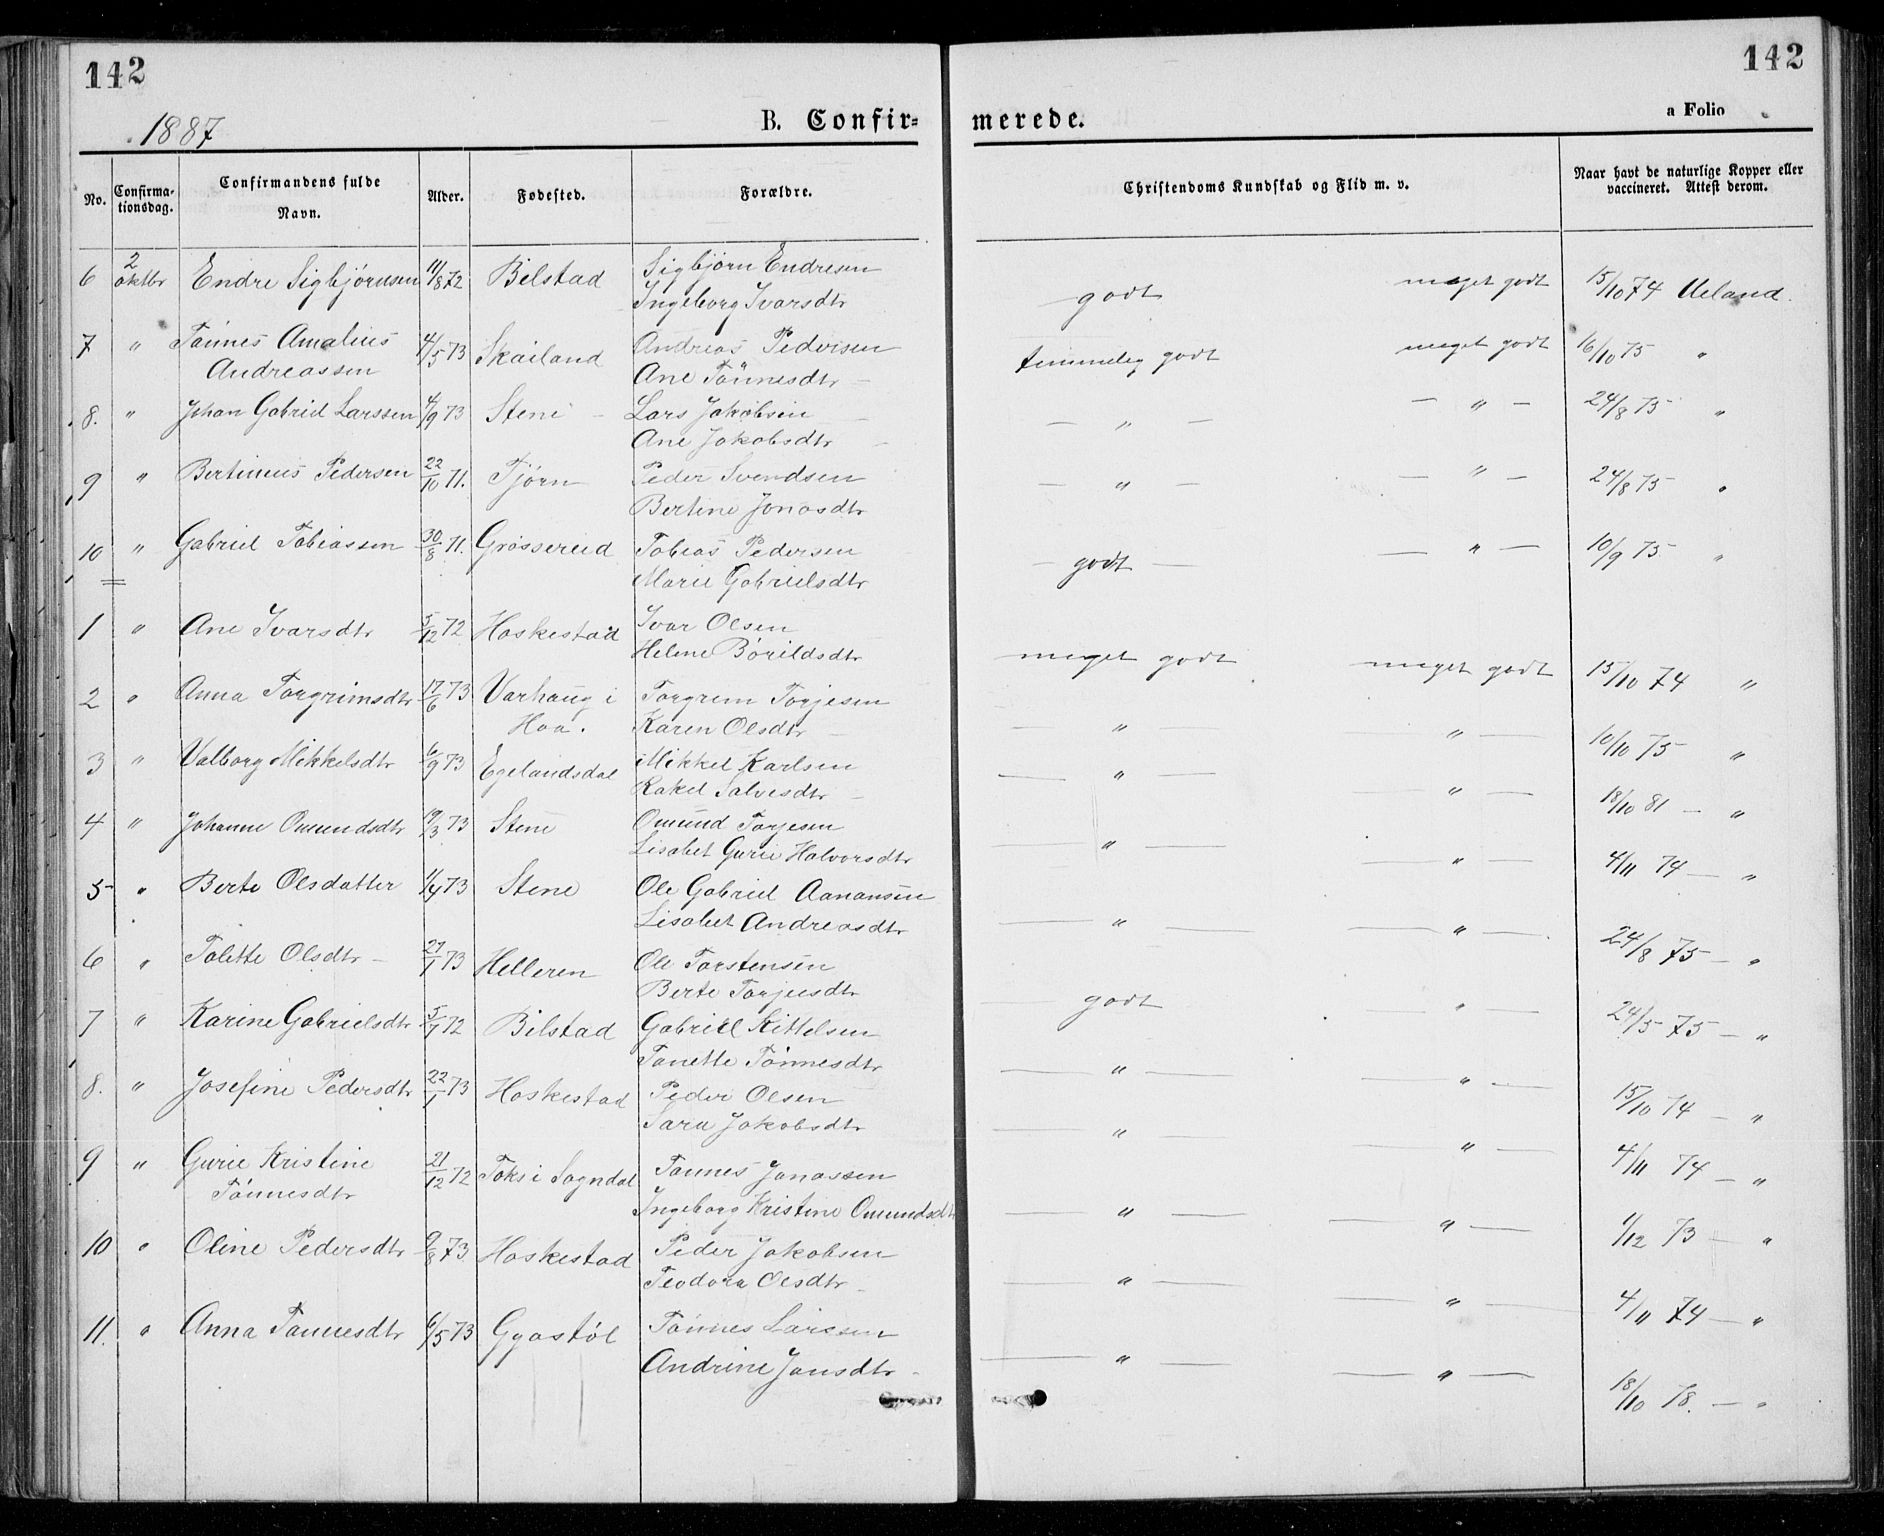 142
142
1887
B. Confir=
merede.
a Folio
No. Confirma-tionsdag. Confirmandens fulde Navn. Alder. Fødested. Forældre. Christendoms Kundskab og Flid m. v. Naar havt de naturlige Kopper eller vaccineret. Attest derom.
6 2 oktbr Endre Sigbjørnsen 11/8 72 Bilstad Sigbjørn Endresen godt meget godt 15/10 74 Ueland.
Ingeborg Ivarsdtr
7 " Tønnes Amalius 4/5 73 Skailand Andreas Pedersen temmelig godt meget godt 16/10 75 "
Andreassen Ane Tønnesdtr –
8. " Johan Gabriel Larssen 4/9 73 Stene – Lars Jakobsen – " – – " – 24/8 75 "
Ane Jakobsdtr –
9 " Bertinius Pedersen 22/10 71. Tjørn Peder Svendsen – " – – " – 24/8 75 "
Bertine Jonasdtr
10 " Gabriel Tobiassen 30/8 71. Grøssereid Tobias Pedersen – godt – – " – 10/9 75 "
Marie Gabrielsdtr
1 " Ane Ivarsdtr 5/12 72 Haskestad Ivar Olsen meget godt meget godt 15/10 74 "
Helene Børildsdtr
2 " Anna Torgrimsdtr 17/6 73 Varhaug i Torgrim Torjesen – " – – " – 10/10 75 "
Haa. Karen Olsdtr –
3 " Valborg Mikkelsdtr 6/9 73 Egelandsdal Mikkel Karlsen – " – – " – 18/10 81 – "
Rakel Salvesdtr –
4 " Johanne Omundsdtr 19/3 73 Stene Omund Torjesen – " – – " – 4/11 74 – "
Lisabet Gurie Halvorsdtr
5 " Berte Olsdatter 1/4 73 Stene Ole Gabriel Aanansen – " – – " – 24/8 75 – "
Lisabet Andreasdtr
6 " Tolette Olsdtr – 27/1 73 Helleren Ole Torstensen – godt – " – 24/5 75 – "
Berte Torjusdtr
7 " Karine Gabrielsdtr 5/7 72 Bilstad Gabriel Kittelsen – " – – " – 15/10 74 – "
Tanette Tønnesdtr
8. " Josefine Pedersdtr 22/1 73 Haskestad Peder Olsen – " – – " – 4/11 74 – "
Sara Jakobsdtr
9 " Gurie Kristine 21/12 72 Toks i Sogndal Tønnes Jonassen – " – – " – 1/12 73 – "
Tønnesdtr Ingeborg Kristine Omundsdtr
10 " Oline Pedersdtr 9/8 73 Haskestad Peder Jakobsen – " – – " – 4/11 74 – "
Teodora Olsdtr –
11. " Anna Tønnesdtr 6/5 73 Gyastøl Tønnes Larssen – " – – " – 18/10 78. – "
Andrine Jansdtr –